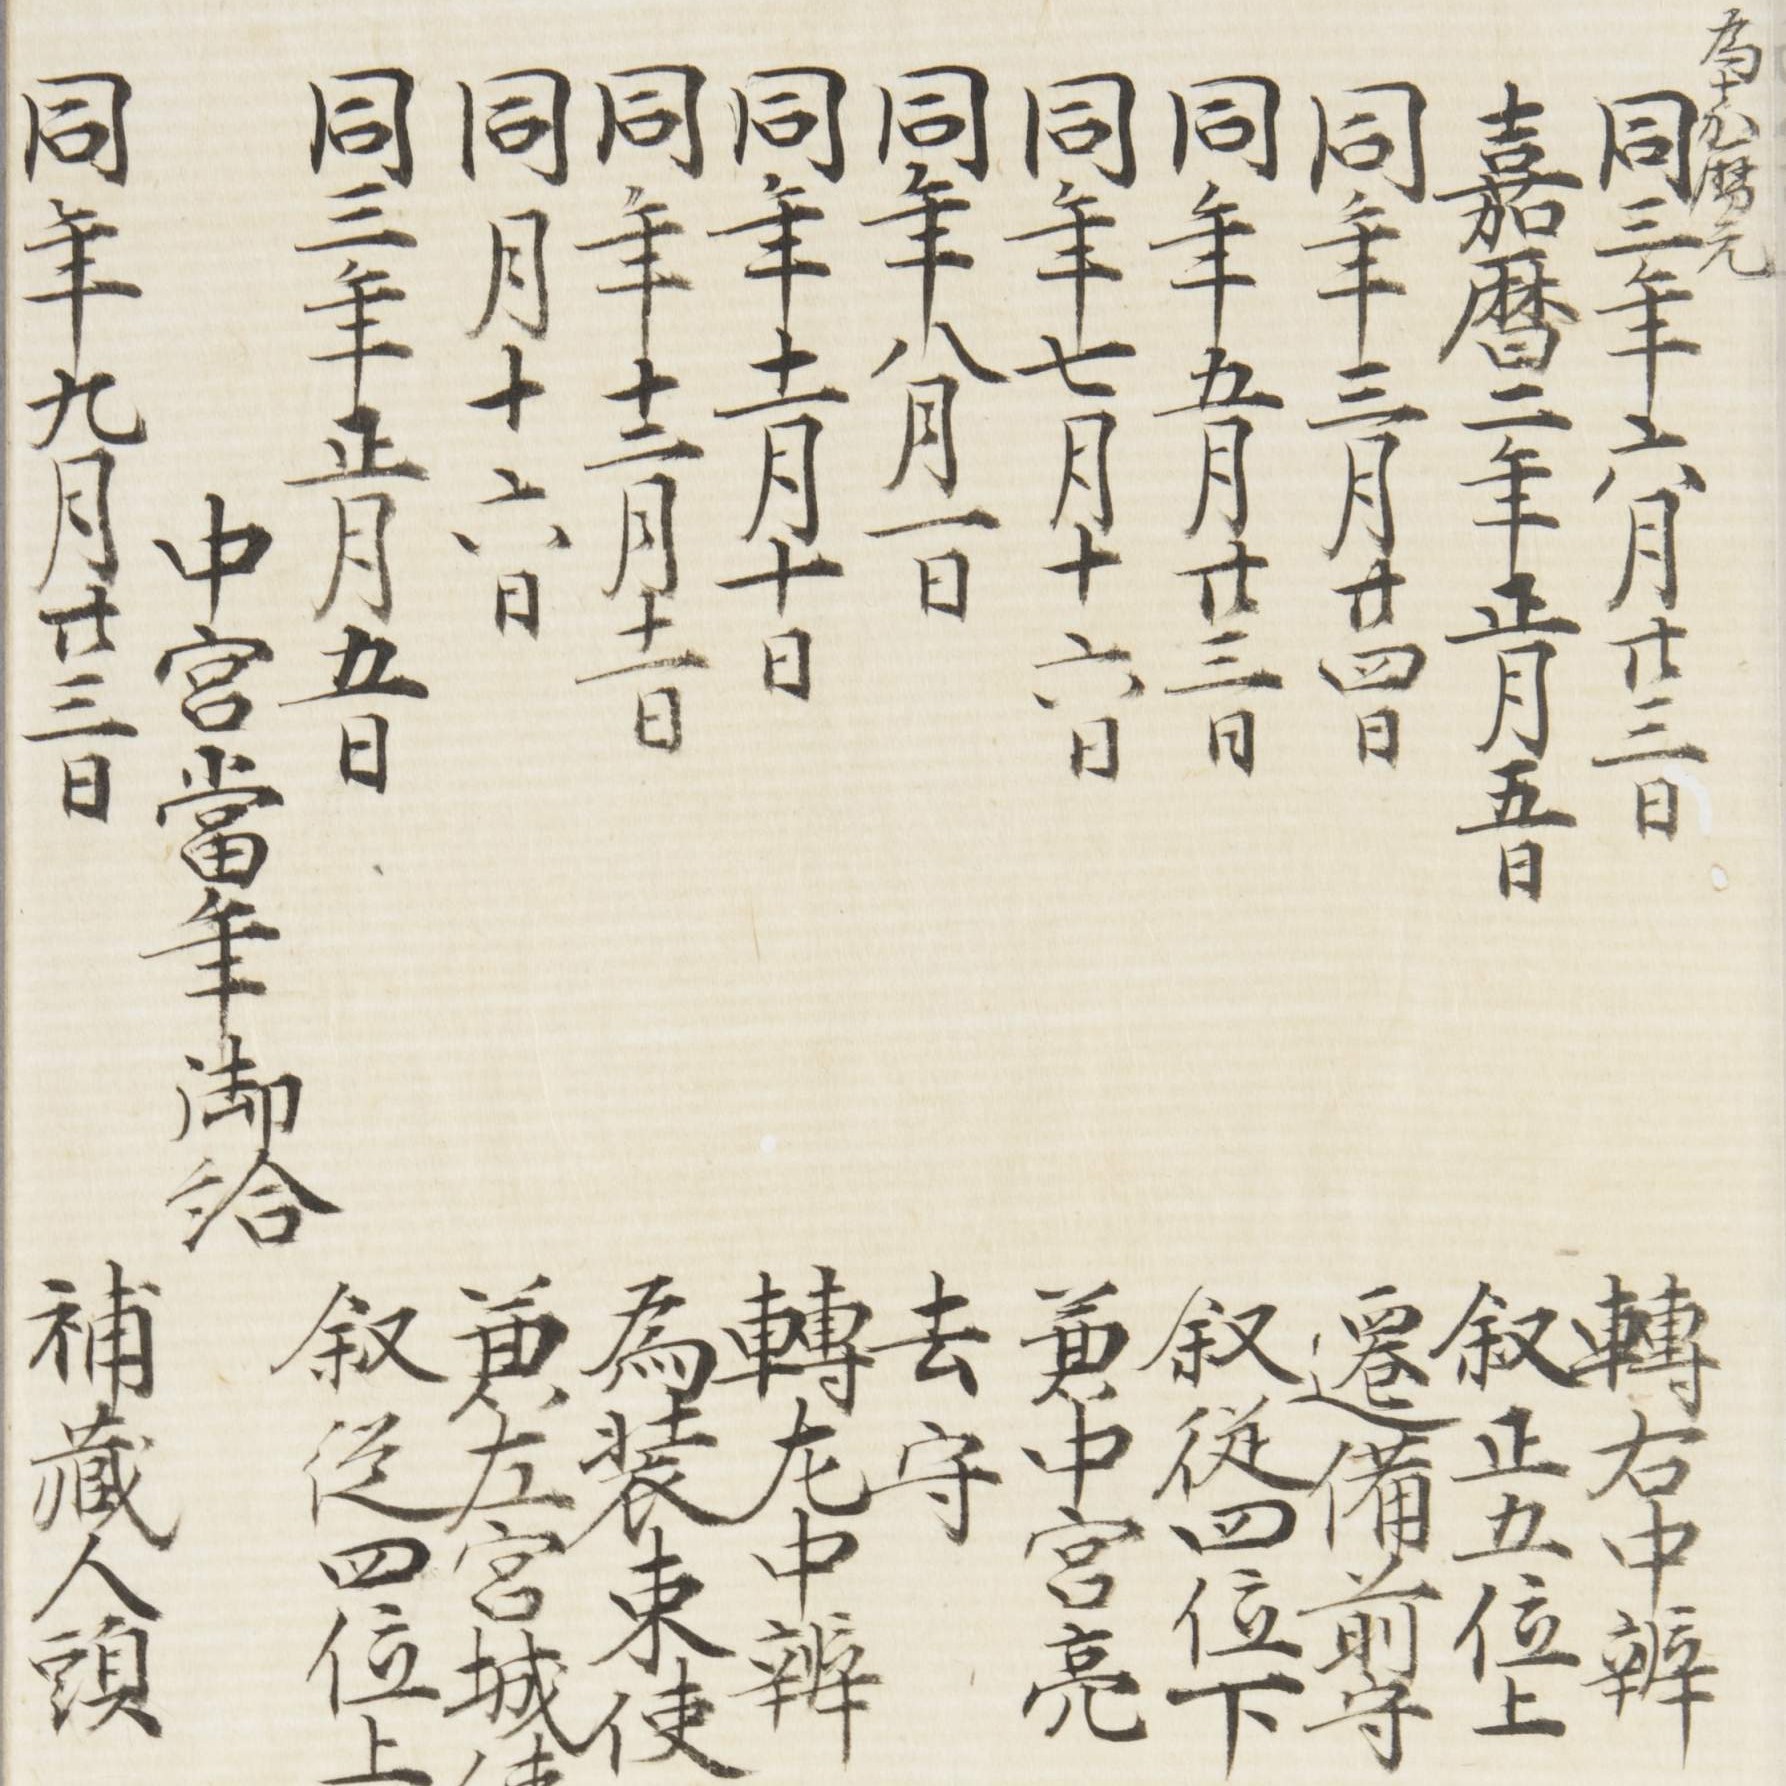 為十九暦元
同三年六月廿三日 轉右中辨
嘉暦二年正月五日 叙正五位上
同年三月廿四日 遷備前守
同年五月廿三日 叙従四位下
同年七月十六日 兼中宮亮
同年八月一日 去守
同年十一月十日 轉左中辨
同年十二月十一日 為装束使
同月十六日 兼左宮城使
同三年正月五日 叙従四位上
中宮當年御給
同年九月廿三日 補蔵人頭